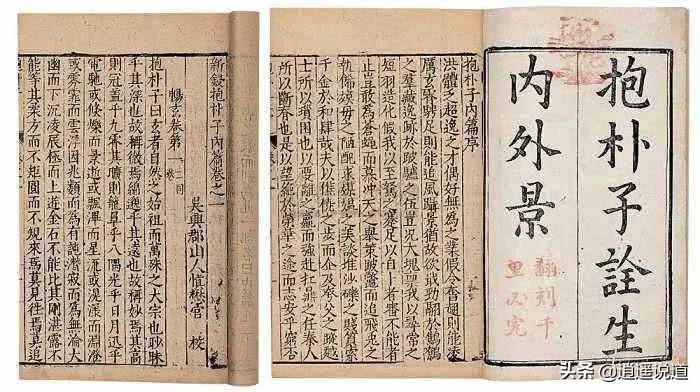 抱朴子詮生
内外景
翻刻千
里必究
抱朴子内篇序
洪體乏超逸之才偶好無為之業假令奮翅則能凌
厲玄霄騁足則能追風躡景猶故欲戢勁翮於鷦鷯
之羣藏逸跡於跛驢之伍豈況大塊稟我以尋常之
短羽造化假我以至駑之蹇足以自卜者審不能者
止豈敢為蒼蠅而慕冲天之舉策跛鼈而追飛兔之
軌飾嫫母之陋醜求媒媍之美談堆沙礫之賤質索
千金於和肆哉夫以僬僥之步而企及夸父之蹤
士所以躓閡也以要離之羸而強赴扛鼎之任秦人
所以斷筋也是以望絕於榮華之途而志安乎窮否
新鋟抱朴子内篇卷之一
吳興郡山人慎懋官 校
暢玄卷第一
抱朴子曰玄者自然之始祖而萬殊之大宗也眇眛
乎其深也故稱微焉綿邈乎其遠也故稱妙焉其高
則冠蓋乎九霄其曠則籠罩乎八隅光乎日月迅乎
電馳或倏爍而景逝或飄滭而星流或滉漾而淵澄
或雰霏而雲浮因兆類而為有託潛寂而為無淪大
幽而下沉凌辰極而上逰金石不能比其剛湛露不
能等其柔方而不矩圓而不規來焉莫見往焉莫追
头条 @逍遥说道